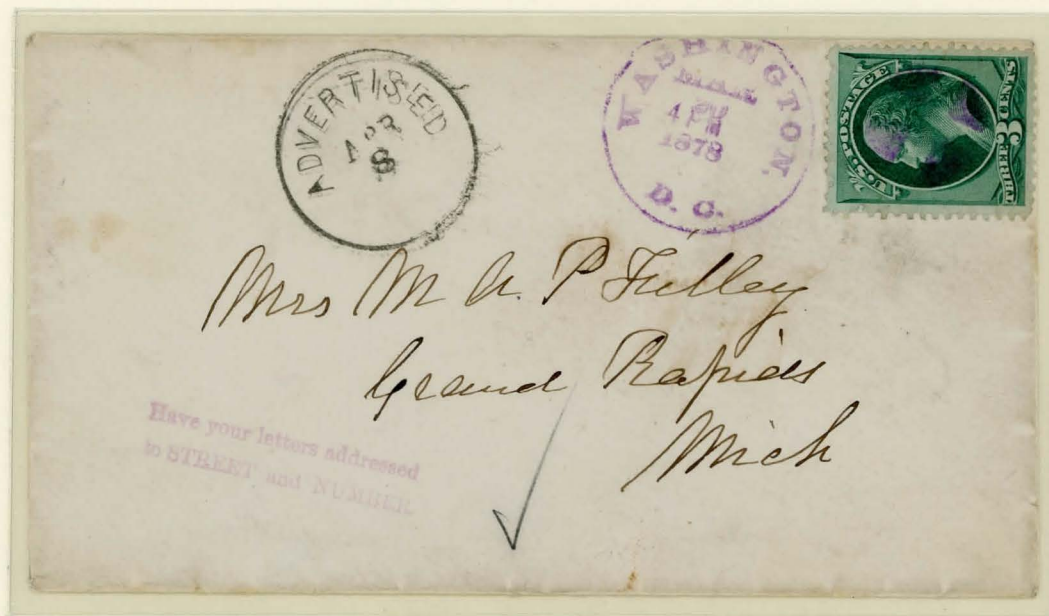 ADVERTISED
APR
8
WASHINGTON.
MAR
4 PM
1878
D. C.
U.S. POSTAGE
3
THREE CENTS
Mrs M A. P Tulley
Grand Rapids
Mich
Have your letters addressed
to STREET and NUMBER